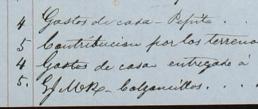 4 Gastos de casa - Pepita . . .
5 Contribucion por los terreno
4 Gastos de casa entregado á
5. Calzoncillos . . . .